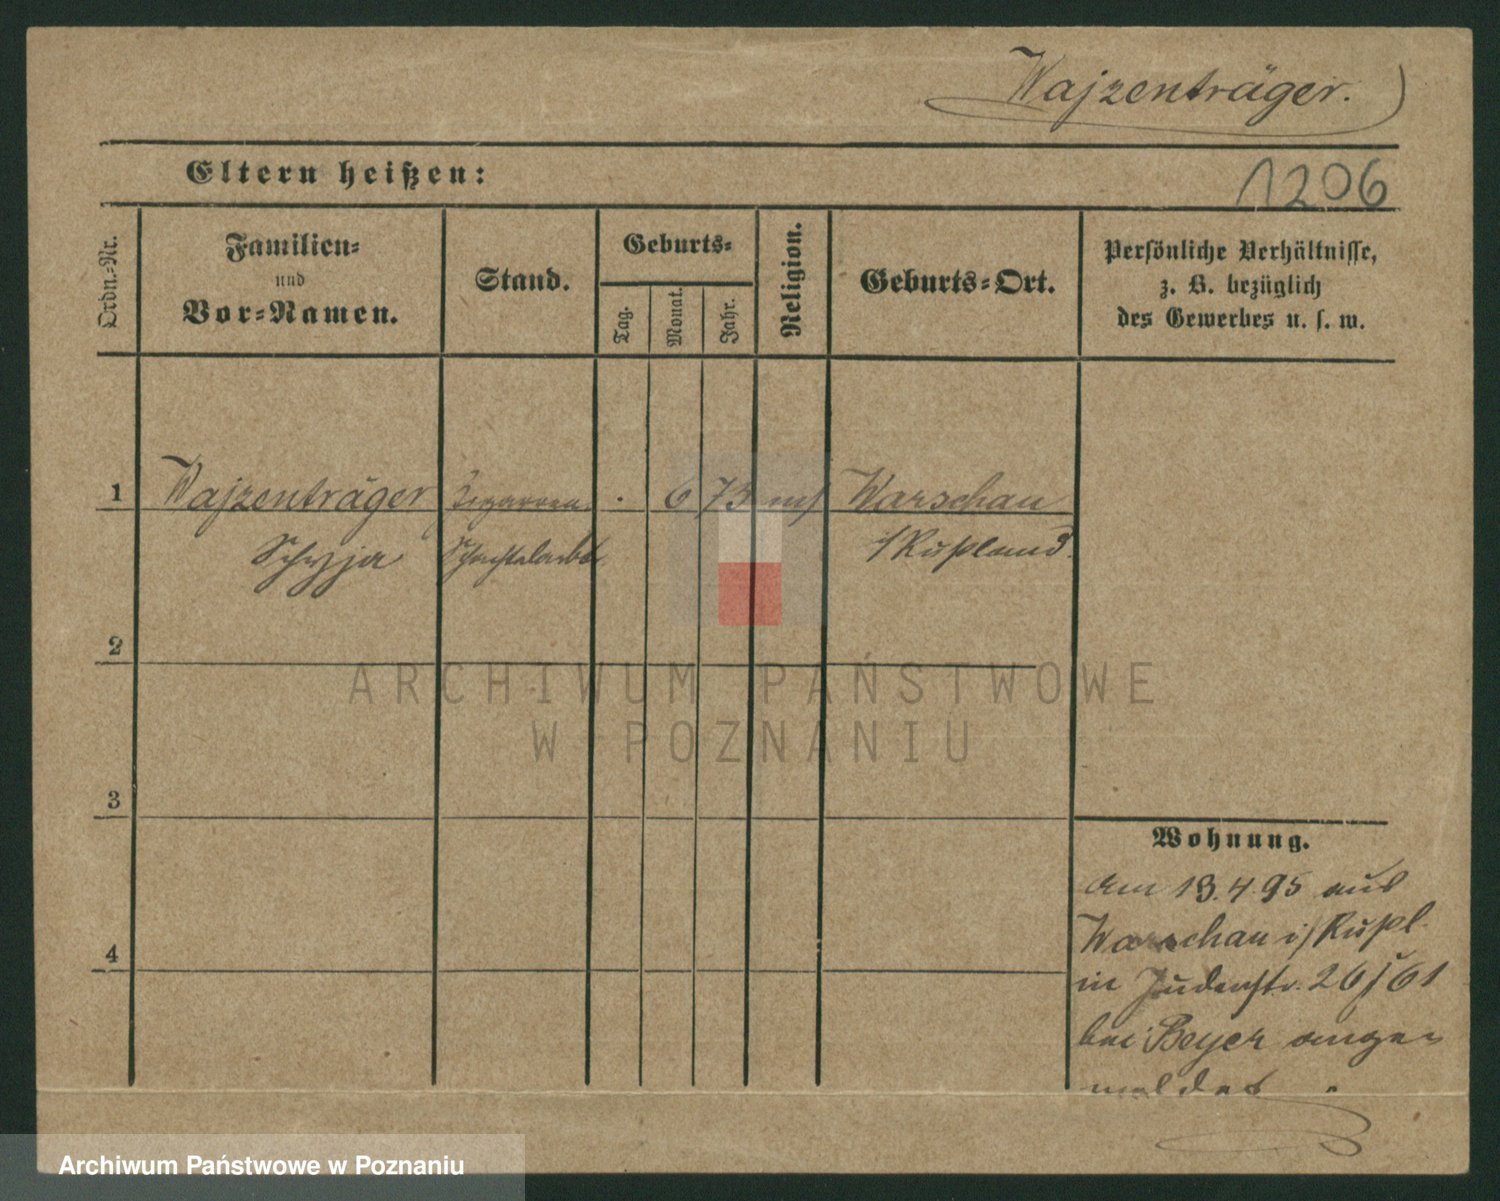 Wajzenträger.
Eltern heißen:
1206
Ordn.=Nr.
Familien=
und
Vor=Namen.
Stand.
Geburts=
Tag.
Monat.
Jahr.
Religion.
Geburts=Ort.
Persönliche Verhältnisse,
z. B. bezüglich
des Gewerbes u. s. w.
1
Wajzenträger
Zigarren
.
6
73
Warschau
Schyja
i/Rußland.
2
ARCHIWUM PAŃSTWOWE
W POZNANIU
3
Wohnung.
am 13.4.95 aus
Warschau i/Rußl.
in Judenstr. 26/61
bei Beyer ange=
meldet.
4
Archiwum Państwowe w Poznaniu